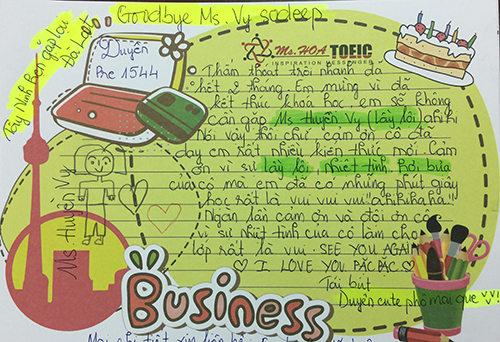 Goodbye Ms. Vy sodeep
Tây Ninh hẹn gặp lại
Đà Lạt
Duyên
Pre 1544
Ms. HOA TOEIC
INSPIRATION MESSENGER
Thấm thoát trôi nhanh đã
hết 2 tháng. Em mừng vì đã
kết thúc khoá học em sẽ không
cần gặp Ms Huyền Vy (lầy lội) ahihi
Nói vậy thôi chứ cảm ơn cô đã
dạy em rất nhiều kiến thức mới. Cảm
ơn vì sự lầy lội, nhiệt tình, hơi bựa
của cô mà em đã có những phút giây
học rất là vui vui vui "ahihihaha"
Ngàn lần cám ơn và đội ơn cô
vì sự nhiệt tình của cô làm cho
lớp rất là vui. SEE YOU AGAIN
I LOVE YOU PẶC PẶC
Tái bút
Duyên cute phô mai que
Ms Huyền Vy
Business